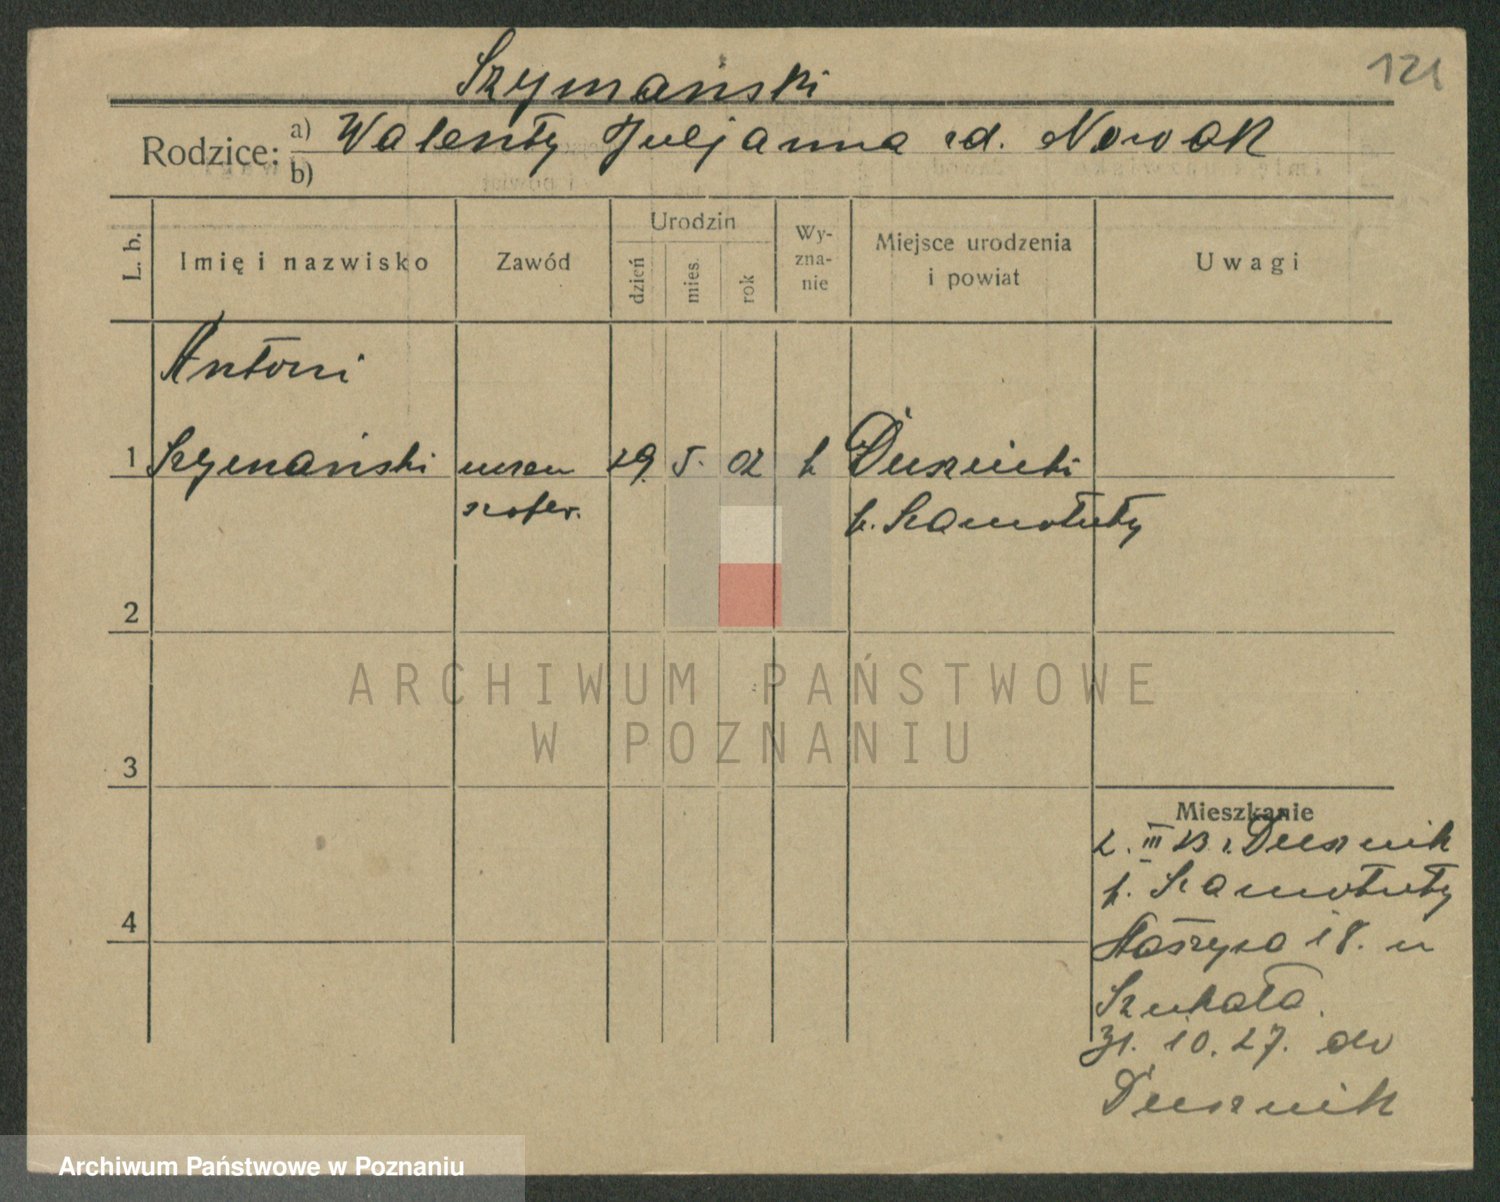 Szymański
121
Rodzice: a) Walenty Juljanna zd. Nowak
b)
L. b.
Imię i nazwisko
Zawód
Urodzin
dzień
mies.
rok
Wy-
zna-
nie
Miejsce urodzenia
i powiat
Uwagi
Antoni
1 Szymański uczeń 29. 5. 02 k Duszniki
szofer. p. Szamotuły
2
ARCHIWUM PAŃSTWOWE
W POZNANIU
3
Mieszkanie
2. III 23 z Dusznik
p. Szamotuły
18. u
Szukała.
4
31. 10. 27. do
Dusznik
Archiwum Państwowe w Poznaniu